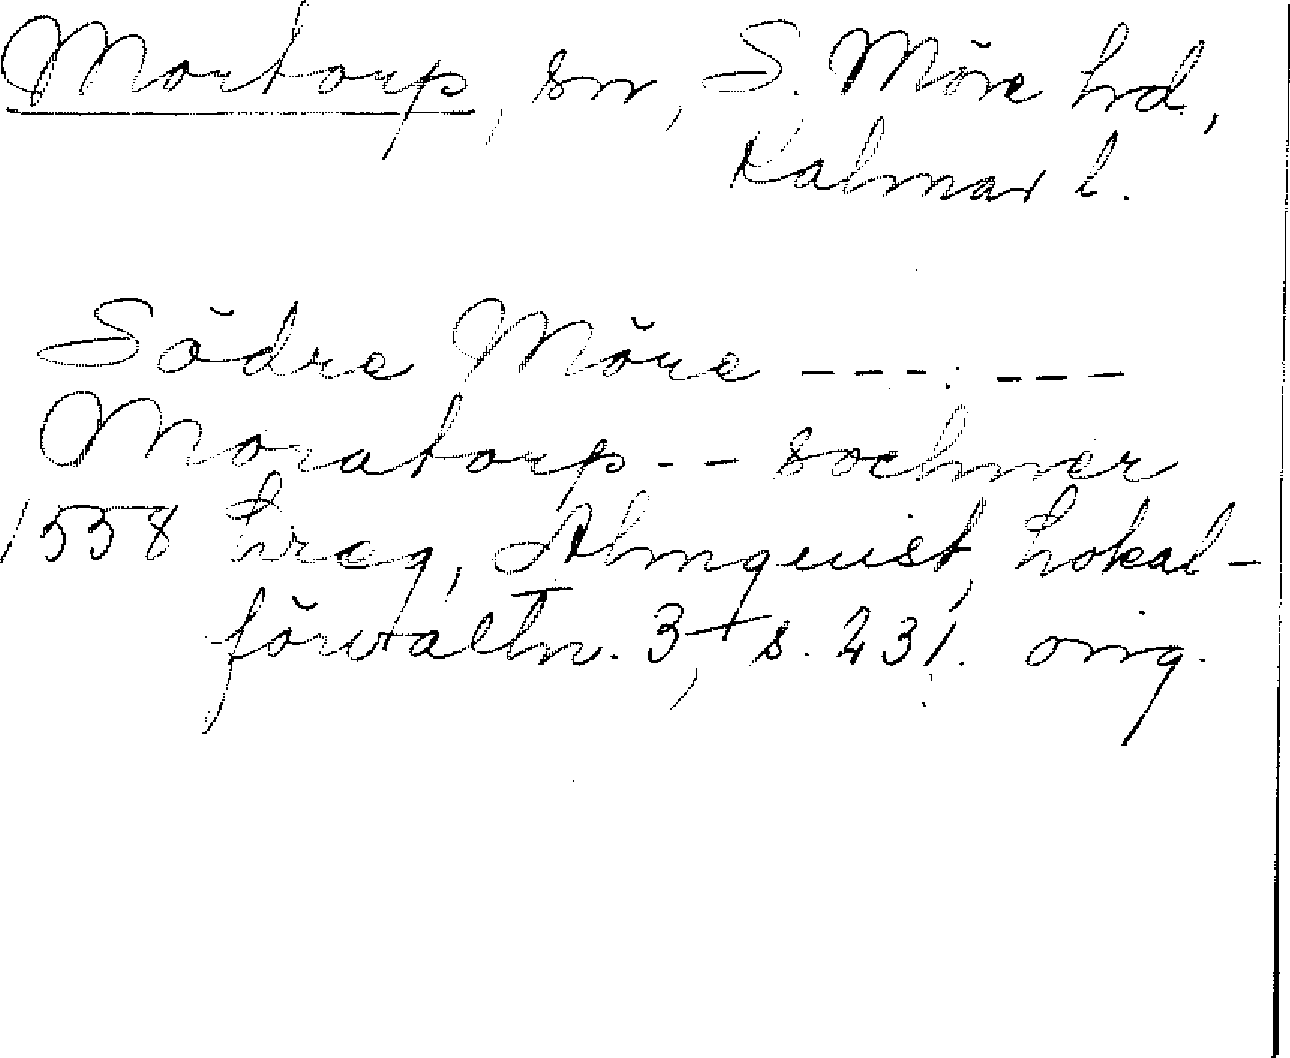 Mortorp, sn, S. Möre hd,
Kalmar l.
Södre Möre --- ---
Moratorp -- sochner
1558 Lreg, Almquist, Lokal-
förvaltn. 3, s. 231. orig.